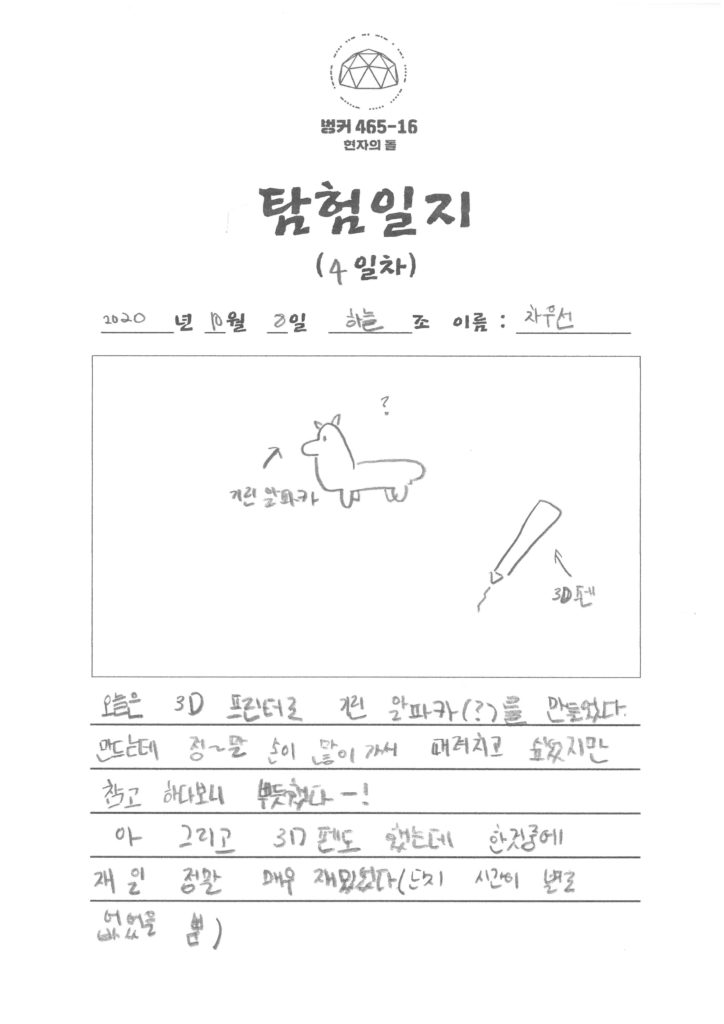 벙커 465-16
현자의 돔
탐험일지
(4 일차)
2020 년 10월 8일 하늘 조 이름 : 차우선
?
기린 알파카
3D펜
오늘은 3D 프린터로 기린 알파카(?)를 만들었다.
만드는데 정~말 손이 많이 가서 때려치고 싶었지만
참고 하다보니 뿌듯했다-!
아 그리고 3D펜도 했는데 한것중에
재 일 정말 매우 재밌었다(단지 시간이 별로
없었을 뿐)